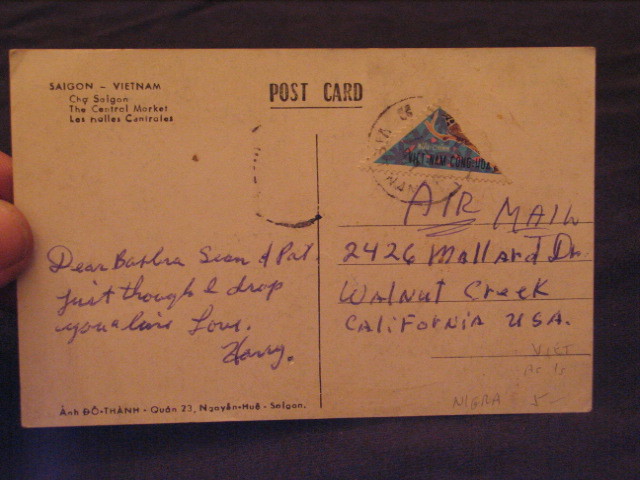 SAIGON - VIETNAM
Chợ Saigon
The Central Market
Les Halles Centrales
POST CARD
VIET-NAM CONG-HOA
AIR MAIL
2426 Mallard Dr.
Walnut Creek
CALIFORNIA USA.
Dear Barbra Sean & Pat.
Just though I drop
you a line Love.
Harry.
Ảnh ĐÔ-THÀNH - Quán 23, Nguyễn-Huệ - Saigon.
VIET
NIGRA 5-